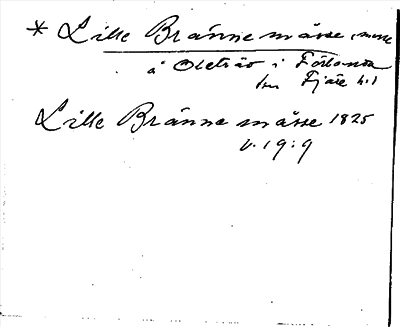 * Lille Brännemässe, mosse
å Oletrão i Förlanda
sn Fjäre hd
Lille Brännemässe 1825
v. 19:9